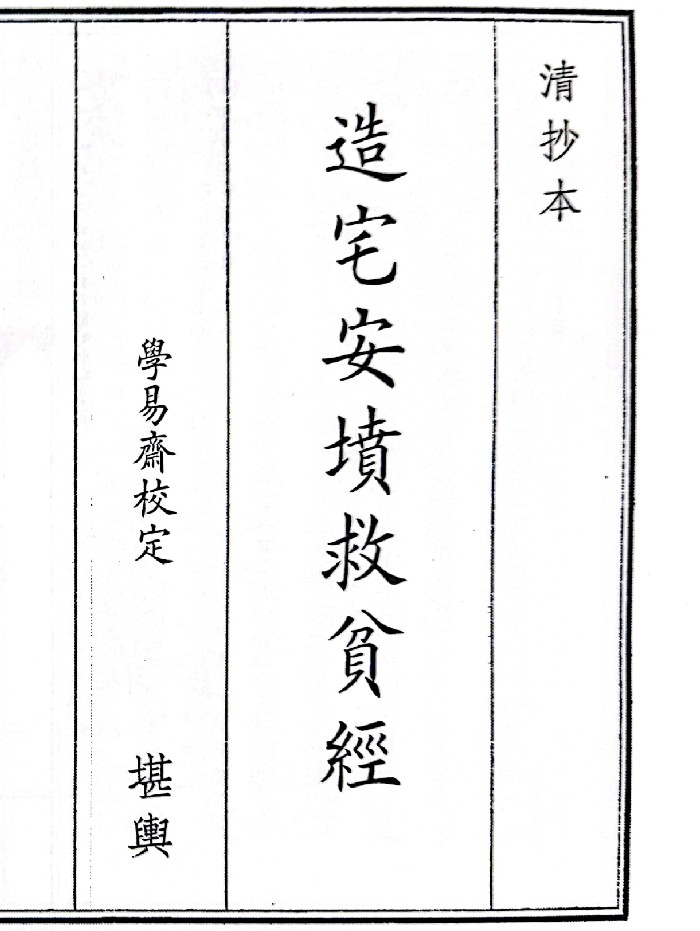 清抄本
造宅安墳救貧經
學易齋校定
堪輿